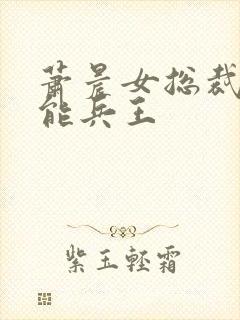 萧晨女总裁
能兵王
紫玉轻霜